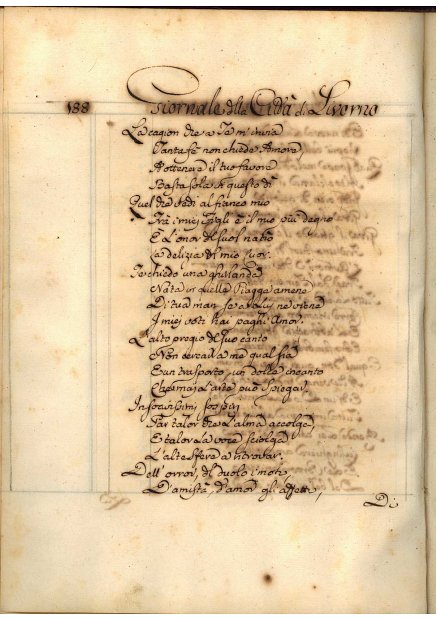 188 Giornale della Città di Livorno
La cagion che a Te m'invia
Tanta fè non chiede Amore,
A ottenere il tuo favore
Basta sola questo dì
Quel che vedi al fianco mio
Trà i miej Figli è il mio più degno
È L'onor del suol natio
La delizia del mio cuor.
Io chiedo una ghirlanda
Nata in quelle Piagge amene
Di tua man se a lui ne viene
I miej voti hai paghi Amor.
L'alto pregio del suo canto
Non cercar da me qual sia
È un trasporto, un dolce incanto
Che mai l'arte può spiegar.
Infocatissimj sospirj
Par talor che l'alma accolga,
E talor la voce sciolga
L'alte sfere a ritrovar.
Dell'orror, del duolo i moti
D'amistà, d'amor gli affetti,
Di